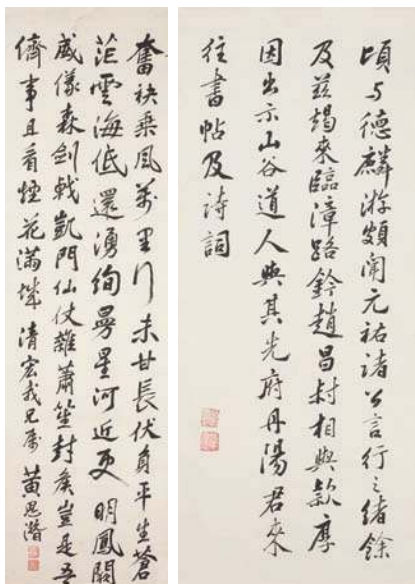 頃与德麟游頗聞元祐諸公言行之緒餘
及茲朅來臨漳路鈐趙昌村相與欵厚
因出示山谷道人與其先府丹陽君來
往書帖及詩詞
奮袂乘風萬里行未甘長伏負平生蒼
茫雲海低還湧絢曼星河近更明鳳闕
威儀森劍戟凱門仙仗雜蕭笙封矦豈是吾
儕事且看煙花滿城 清宏我兄屬 黃思潛